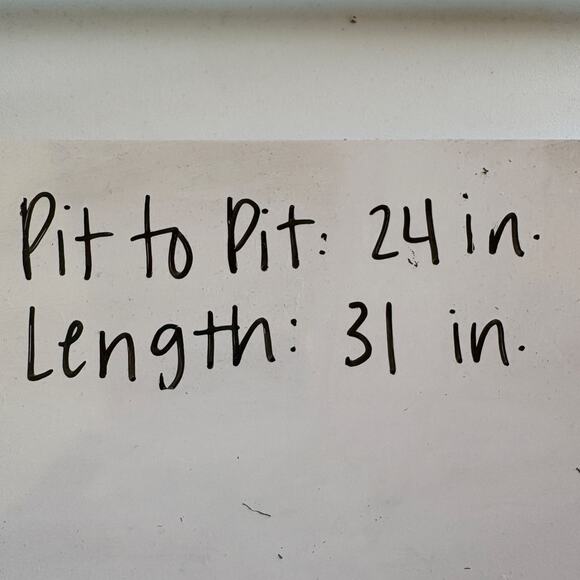 Pit to Pit: 24 in.
Length: 31 in.